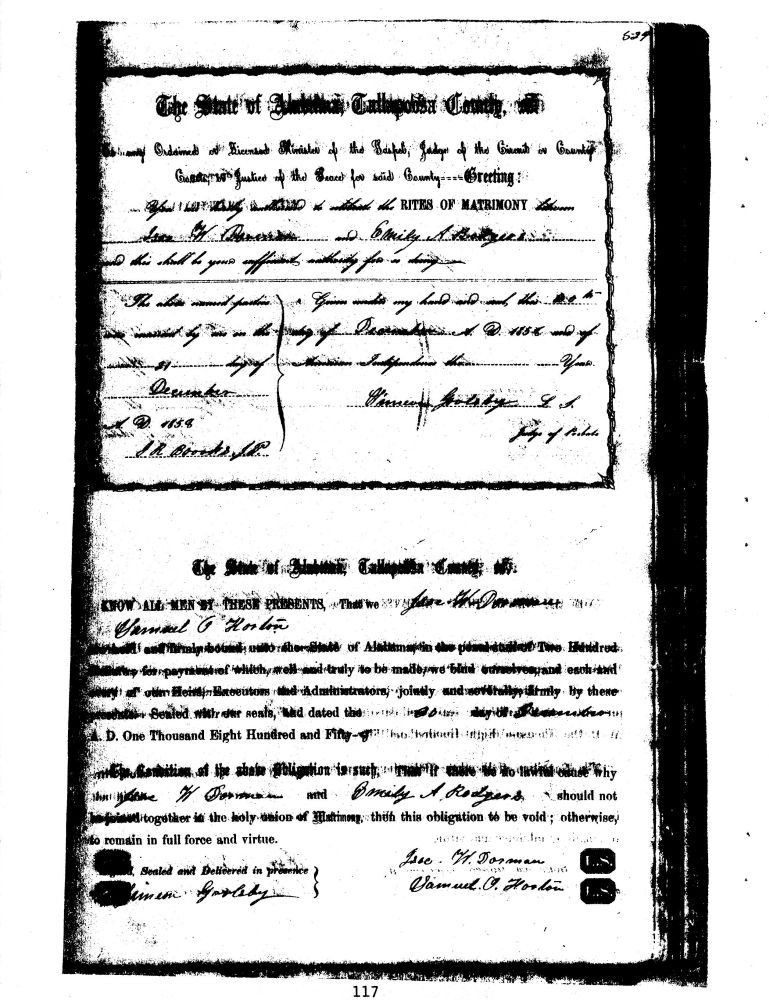 629
The State of Alabama, Tallapoosa County, ss
any Ordained or Licensed Minister of the Gospel, Judge of the Circuit or County
Court, or Justice of the Peace for said County----Greeting:
You are hereby authorized to the RITES OF MATRIMONY between
W. Dorman and Emily A Rodgers
and this shall be your sufficient authority for so doing
The above named parties Given under my hand and seal, this
were married by me on the day of December A. D. 185 and of
31 day of American Independence the Year
December Simeon Goolsby L. S.
A. D. 1858 Judge of Probate
J.P.
The State of Alabama, Tallapoosa County, ss.
KNOW ALL MEN BY THESE PRESENTS, That we W. Dorman
Samuel Horton
and firmly bound unto the State of Alabama in the penal sum of Two Hundred
for payment of which, well and truly to be made, we bind ourselves, and each and
every of our Heirs, Executors and Administrators, jointly and severally, firmly by these
presents. Sealed with our seals, and dated the day of December
A. D. One Thousand Eight Hundred and Fifty-
The Condition of the above Obligation is such, That if there be no lawful cause why
W Dorman and Emily A. Rodgers should not
be joined together in the holy union of Matrimony, then this obligation to be void; otherwise,
to remain in full force and virtue.
Sealed and Delivered in presence W. Dorman L.S.
Simeon Goolsby Samuel Horton L.S.
117